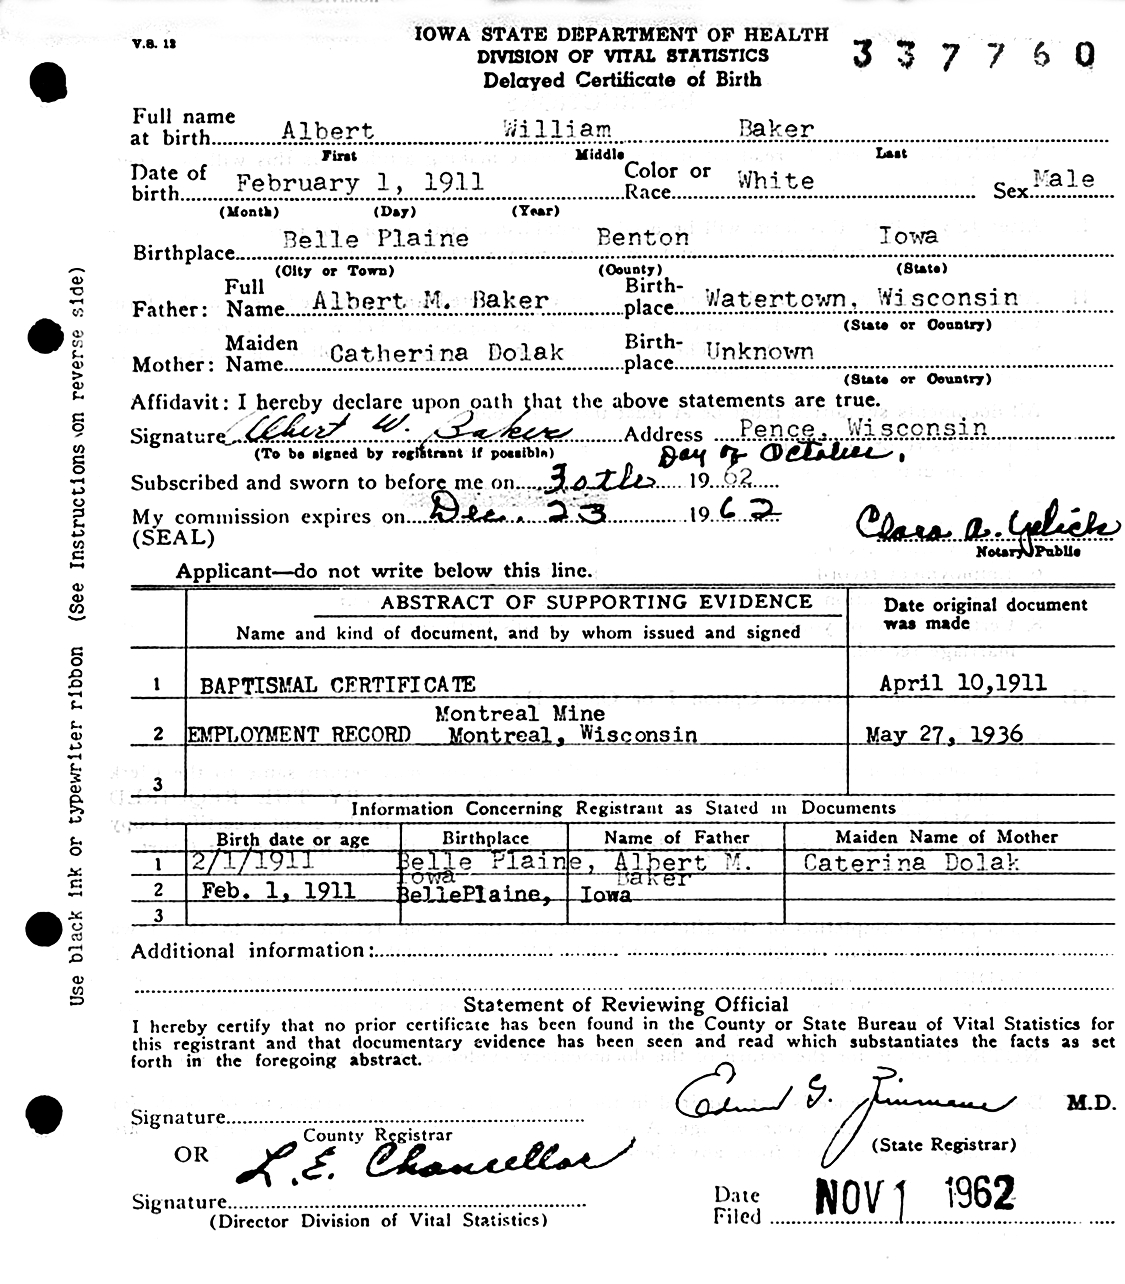 V.S. 12
IOWA STATE DEPARTMENT OF HEALTH
DIVISION OF VITAL STATISTICS
Delayed Certificate of Birth
337760
Full name at birth Albert William Baker
First Middle Last
Date of birth February 1, 1911 Color or Race White Sex Male
(Month) (Day) (Year)
Birthplace Belle Plaine Benton Iowa
(City or Town) (County) (State)
Father: Full Name Albert M. Baker Birth-place Watertown, Wisconsin
(State or Country)
Mother: Maiden Name Catherina Dolak Birth-place Unknown
(State or Country)
Affidavit: I hereby declare upon oath that the above statements are true.
Signature Albert W. Baker Address Pence, Wisconsin
(To be signed by registrant if possible)
Day of October,
Subscribed and sworn to before me on 30the 1962
My commission expires on Dec. 23 1962
(SEAL)
Clara A.
Notary Public
Applicant—do not write below this line.
ABSTRACT OF SUPPORTING EVIDENCE
Name and kind of document, and by whom issued and signed
Date original document was made
1 BAPTISMAL CERTIFICATE April 10,1911
Montreal Mine
2 EMPLOYMENT RECORD Montreal, Wisconsin May 27, 1936
3
Information Concerning Registrant as Stated in Documents
Birth date or age Birthplace Name of Father Maiden Name of Mother
1 2/1/1911 Belle Plaine, Albert M. Caterina Dolak
Iowa Baker
2 Feb. 1, 1911 BellePlaine, Iowa
3
Additional information:
Statement of Reviewing Official
I hereby certify that no prior certificate has been found in the County or State Bureau of Vital Statistics for
this registrant and that documentary evidence has been seen and read which substantiates the facts as set
forth in the foregoing abstract.
Edmund G. Zimmerer M.D.
Signature
County Registrar
(State Registrar)
OR
L. E. Chancellor
Signature
(Director Division of Vital Statistics)
Date Filed NOV 1 1962
Use black ink or typewriter ribbon (See Instructions on reverse side)